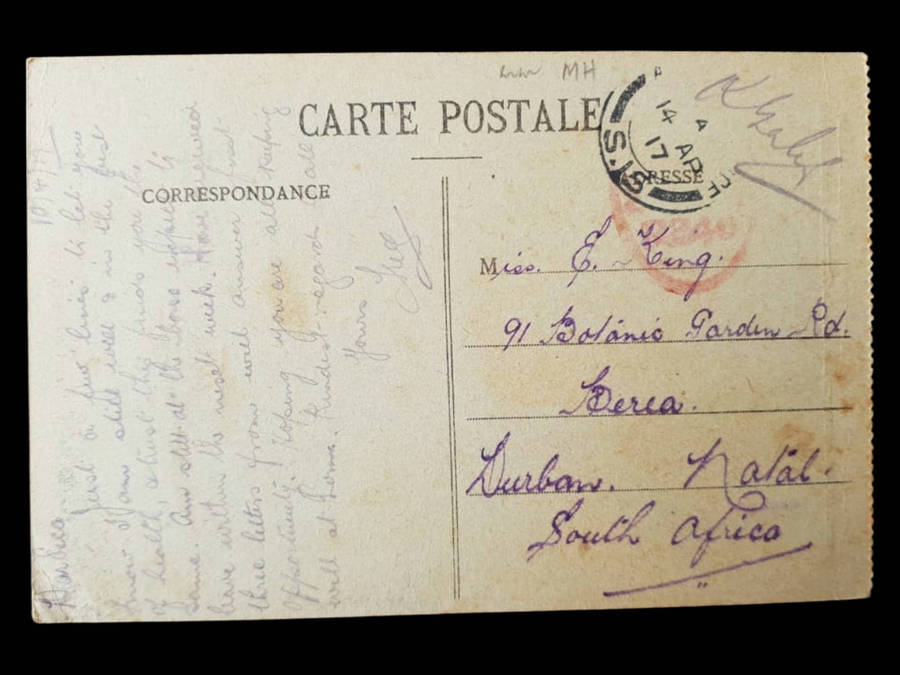 MH
CARTE POSTALE
CORRESPONDANCE
14 AP
17
10/4/17
just a few lines to let you
know I am still well & in the best
of health, & trust this finds you the
same. Am still at the base expect to
leave within the next week. Have received
three letters from will answer first
opportunity. Hoping you are all keeping
well at home. Kindest regards to all
Yours
Miss. E. King.
91 Botanic Garden Rd.
Berea.
Durban. Natal.
South Africa